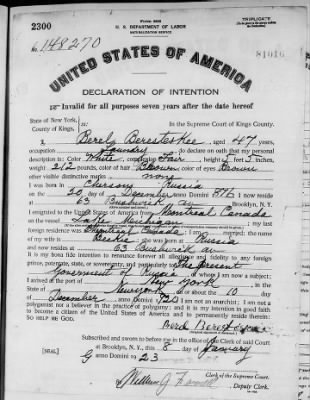 2300
Form 2203
U. S. DEPARTMENT OF LABOR
NATURALIZATION SERVICE
TRIPLICATE
No. 148270
81016
UNITED STATES OF AMERICA
DECLARATION OF INTENTION
Invalid for all purposes seven years after the date hereof
State of New York,
County of Kings, ss:
In the Supreme Court of Kings County.
I, Berel Beresteskee, aged 47 years,
occupation Laundry, do declare on oath that my personal
description is: Color White, complexion Fair, height 5 feet 5 inches,
weight 212 pounds, color of hair Brown, color of eyes Brown
other visible distinctive marks none
I was born in Cherson, Russia
on the 20 day of December, anno Domini 1875; I now reside
at 63 Bushwick av Brooklyn, N.Y.
I emigrated to the United States of America from Montreal Canada
on the vessel Lake Michigan; my last
foreign residence was Montreal Canada; I am married; the name
of my wife is Beckie; she was born at Russia
and now resides at 63 Bushwick av
It is my bona fide intention to renounce forever all allegiance and fidelity to any foreign
prince, potentate, state, or sovereignty, and particularly to The present
Government of Russia of whom I am now a subject;
I arrived at the port of New York, in the
State of New York, on or about the 10 day
of December, anno Domini; I am not an anarchist; I am not a
polygamist nor a believer in the practice of polygamy; and it is my intention in good faith
to become a citizen of the United States of America and to permanently reside therein:
SO HELP ME GOD.
Subscribed and sworn to before me in the office of the Clerk of said Court
at Brooklyn, N. Y., this 8 day of January
anno Domini 1923
[SEAL]
Clerk of the Supreme Court.
Deputy Clerk.